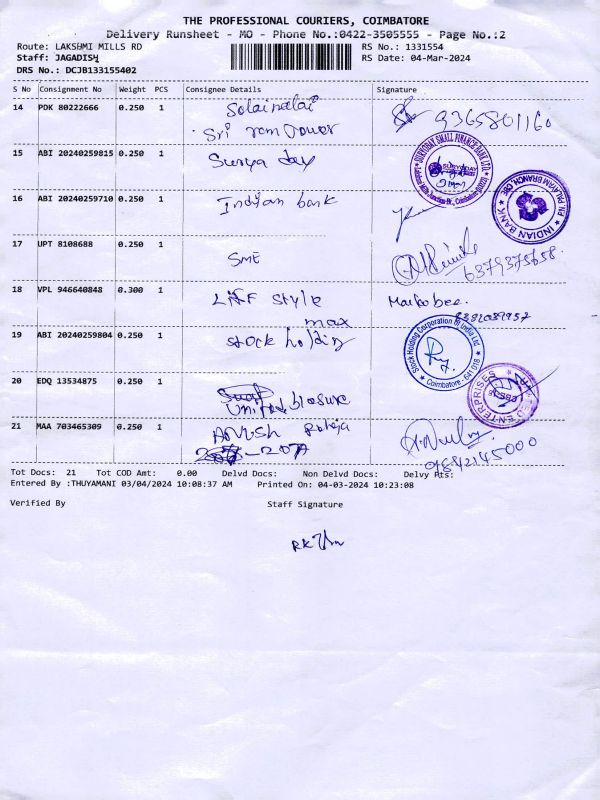 THE PROFESSIONAL COURIERS, COIMBATORE
Delivery Runsheet - MO - Phone No.:0422-3505555 - Page No.:2
Route: LAKSHMI MILLS RD RS No.: 1331554
Staff: JAGADISH RS Date: 04-Mar-2024
DRS No.: DCJB133155402
S No Consignment No Weight PCS Consignee Details Signature
14 PDK 80222666 0.250 1
Sri ram Power 9365801160
15 ABI 20240259815 0.250 1 Surya day
SURYODAY SMALL FINANCE BANK LTD
SURYODAY
16 ABI 20240259710 0.250 1 Indian bank
INDIAN BANK
17 UPT 8108688 0.250 1 SME
6379375658
18 VPL 946640848 0.300 1 Life style
max
19 ABI 20240259804 0.250 1 Stock holding
Stock Holding Corporation of India Ltd
Coimbatore - 641 018
20 EDQ 13534875 0.250 1
United
ENTERPRISES
21 MAA 703465309 0.250 1
9842145000
Tot Docs: 21 Tot COD Amt: 0.00 Delvd Docs: Non Delvd Docs: Delvy Pts:
Entered By :THUYAMANI 03/04/2024 10:08:37 AM Printed On: 04-03-2024 10:23:08
Verified By Staff Signature